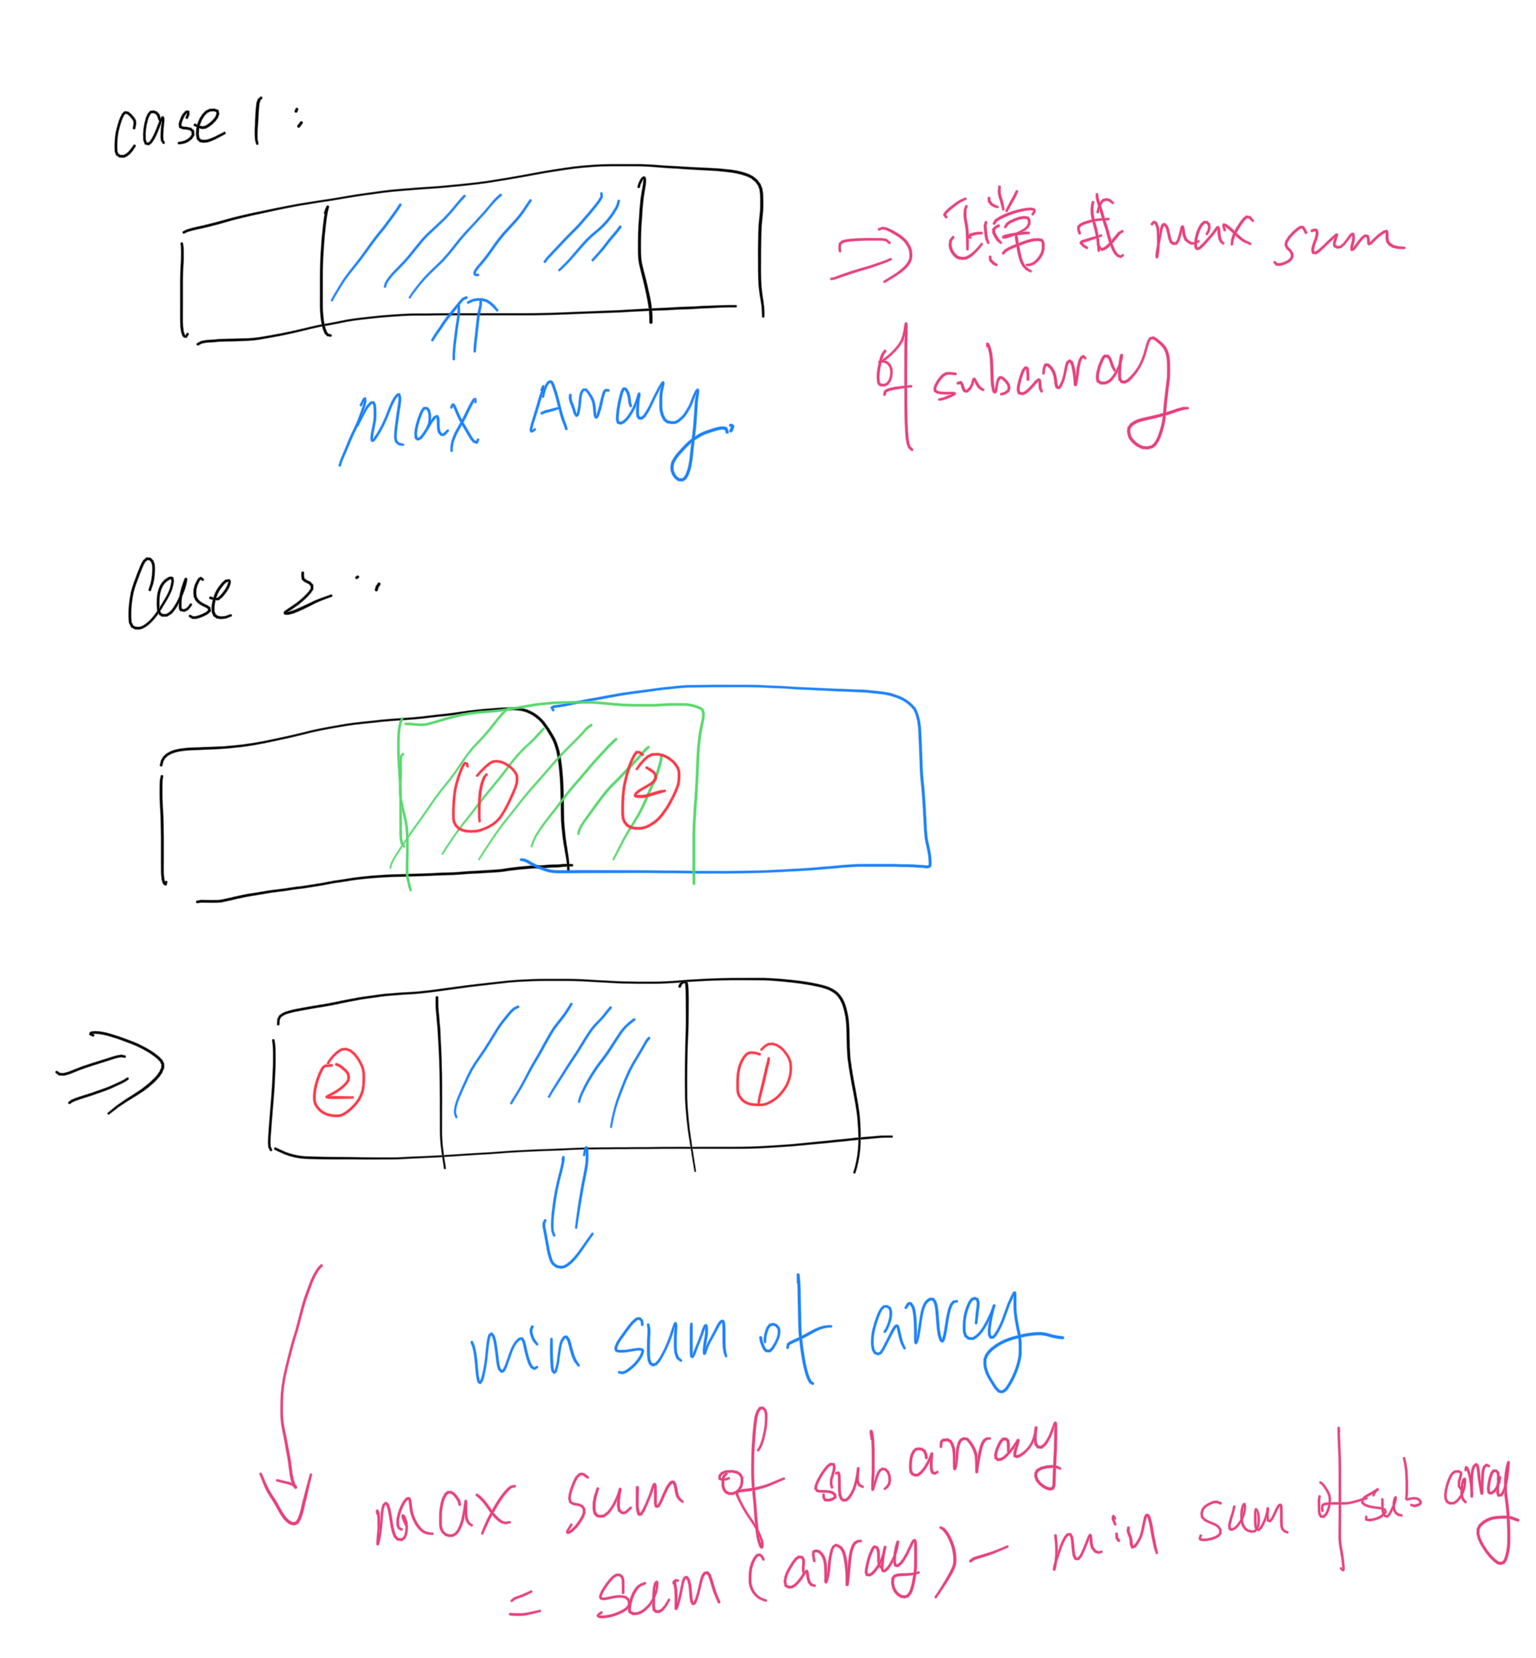 case 1:
⇒ 正常 找 max sum
of subarray
Max Array.
Case 2:
① ②
⇒ ② ①
min sum of array
max sum of subarray
= sum(array) - min sum of subarray